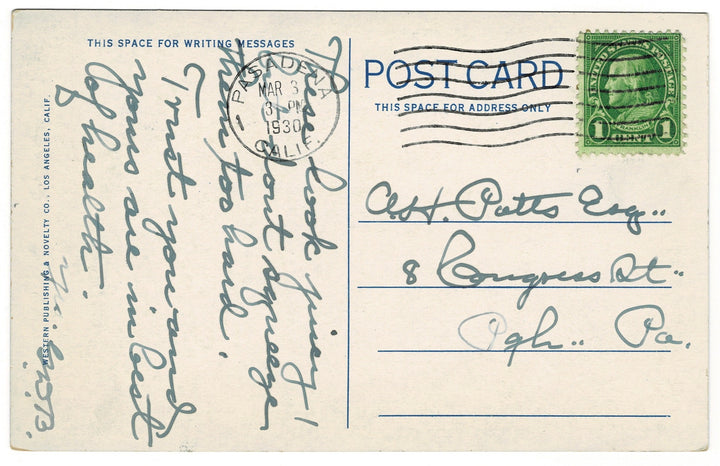 THIS SPACE FOR WRITING MESSAGES
These look juicy!
dont squeeze
them too hard.
Trust you and
yours are in best
of health.
WESTERN PUBLISHING & NOVELTY CO., LOS ANGELES, CALIF.
PASADENA
MAR 3
3 PM
1930
CALIF.
POST CARD
THIS SPACE FOR ADDRESS ONLY
UNITED STATES POSTAGE
FRANKLIN
1 CENT 1
A.H. Potts Esq..
8 Congress St..
Pgh.. Pa.